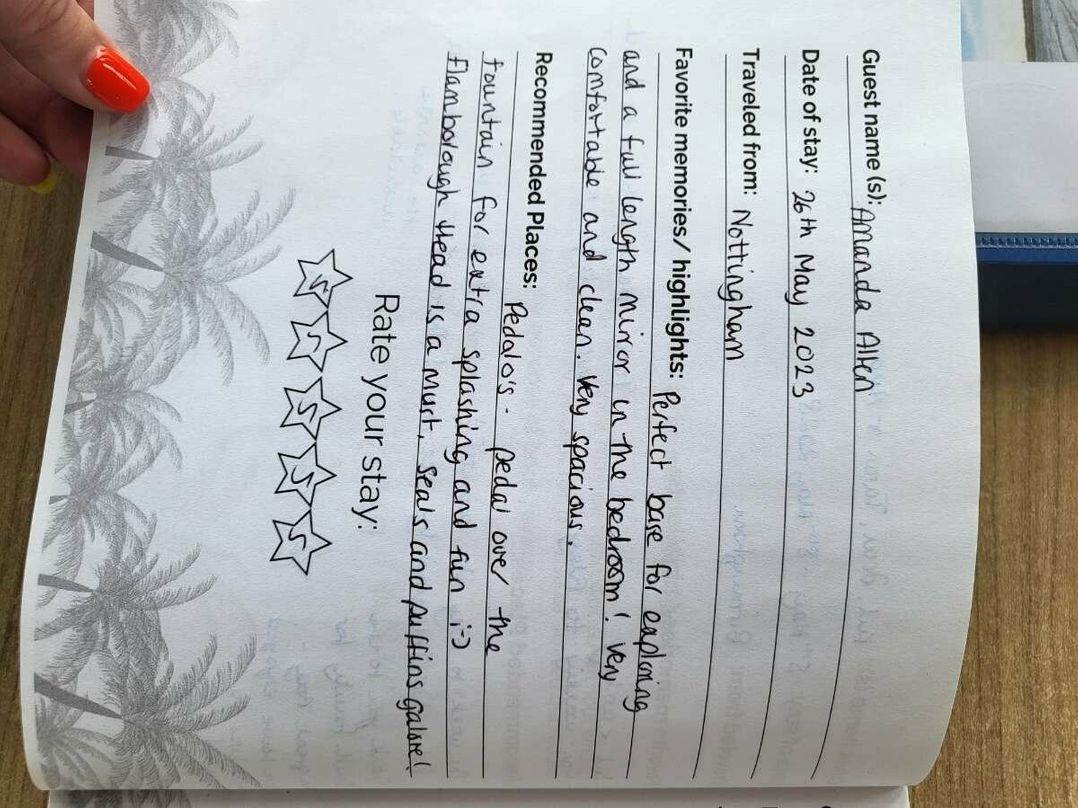 Guest name (s): Amanda Allen
Date of stay: 26th May 2023
Traveled from: Nottingham
Favorite memories/ highlights: Perfect base for exploring
and a full length mirror in the bedroom! Very
comfortable and clean. Very spacious.
Recommended Places: Pedalo's - pedal over the
fountain for extra splashing and fun :-)
Flamborough Head is a must, seals and puffins galore!
Rate your stay:
5 5 5 5 5